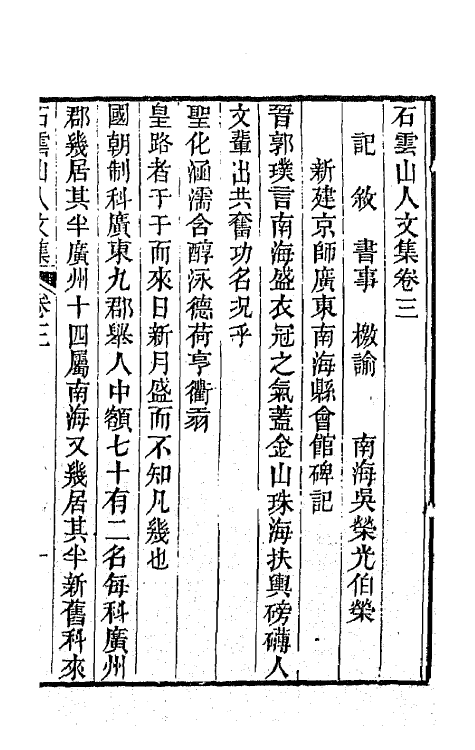 石雲山人文集卷三
記 敘 書事 檄諭 南海吳榮光伯榮
新建京師廣東南海縣會館碑記
晉郭璞言南海盛衣冠之氣蓋金山珠海扶輿磅礴人
文輩出共奮功名況乎
聖化涵濡含醇泳德荷亨衢翊
皇路者于于而來日新月盛而不知凡幾也
國朝制科廣東九郡舉人中額七十有二名每科廣州
郡幾居其半廣州十四屬南海又幾居其半新舊科來
石雲山人文集 卷三 一